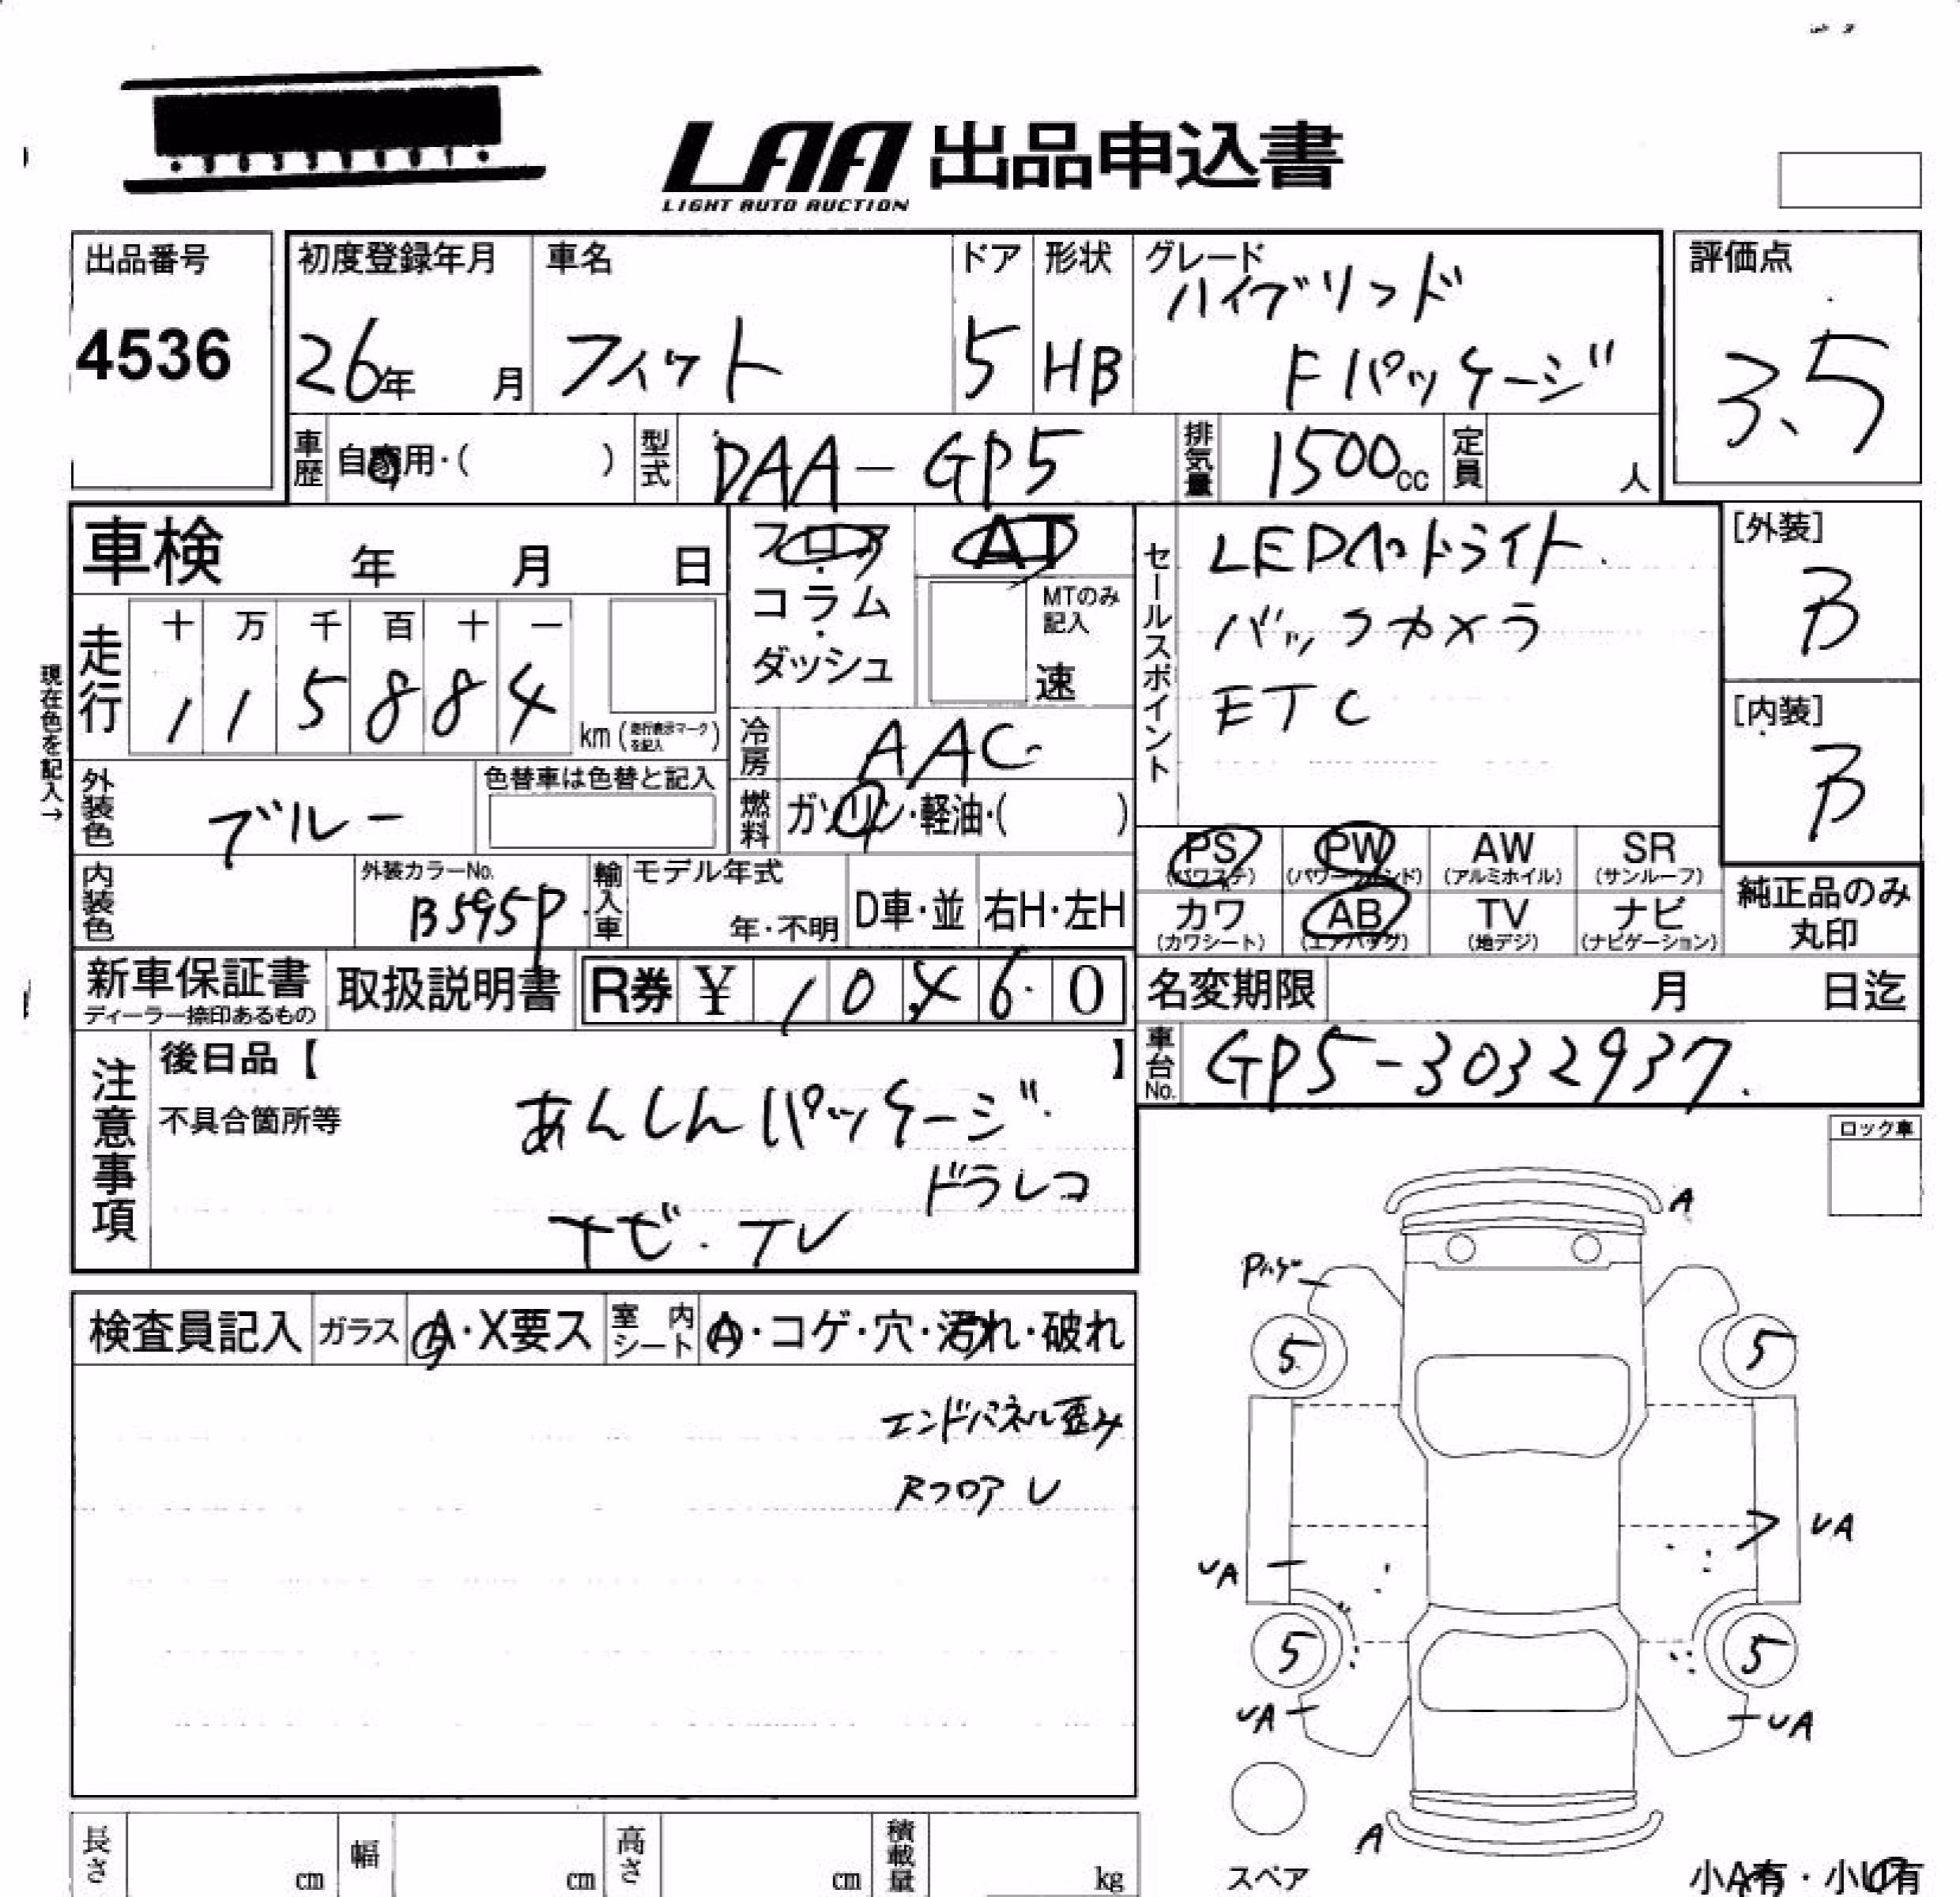 LAA 出品申込書
LIGHT AUTO AUCTION
出品番号
4536
初度登録年月
26年 月
車名
フィット
ドア
5
形状
HB
グレード
ハイブリッド
Fパッケージ
評価点
3.5
車歴
自家用・( )
型式
DAA-GP5
排気量
1500cc
定員
人
車検 年 月 日
フロア・コラム・ダッシュ
AT
MTのみ記入
速
セールスポイント
LEDヘッドライト
バックカメラ
ETC
[外装]
B
[内装]
B
現在色を記入→
走行
十 万 千 百 十 一
1 1 5 8 8 4
km (走行表示マークを記入)
冷房
AAC
燃料
ガソリン・軽油・( )
外装色
ブルー
色替車は色替と記入
内装色
外装カラーNo.
B595P
輸入車
モデル年式
年・不明
D車・並
右H・左H
PS (パワステ)
PW (パワーウィンド)
AW (アルミホイル)
SR (サンルーフ)
カワ (カワシート)
AB (エアバッグ)
TV (地デジ)
ナビ (ナビゲーション)
純正品のみ
丸印
新車保証書
ディーラー捺印あるもの
取扱説明書
R券 ¥ 10,460
名変期限 月 日迄
車台No.
GP5-3032937
注意事項
後日品【 】
不具合箇所等
あんしんパッケージ
ドラレコ
ナビ・TV
ロック車
検査員記入
ガラス
A・X要ス
室内シート
A・コゲ・穴・汚れ・破れ
エンドパネル歪み
Rフロア U
A
5
5
UA
UA
5
5
UA
UA
A
スペア
小A有・小U有
長さ cm
幅 cm
高さ cm
積載量 kg